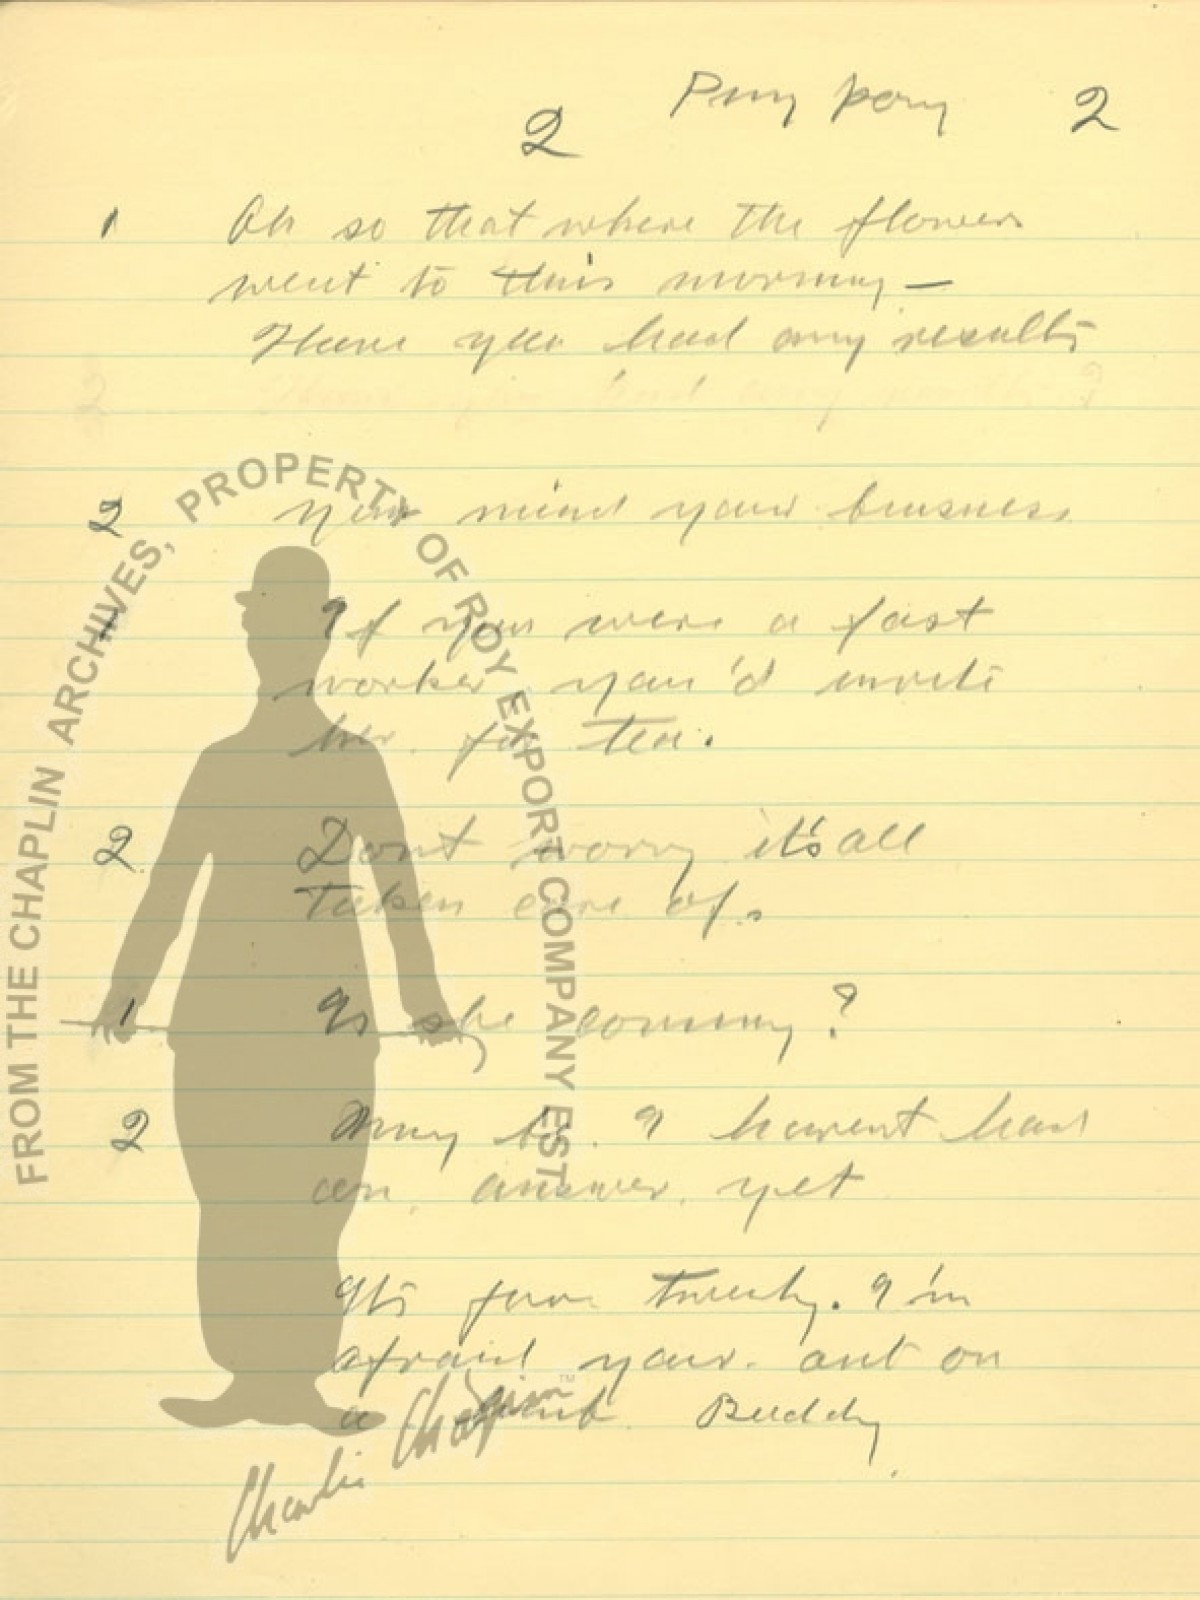 2 Ping pong 2
1 Oh so that where the flowers
went to this morning —
Have you had any results
2 Have you had any results ?
2 You mind your business
1 If you were a fast
worker you'd invite
her for tea.
2. Dont worry it's all
Taken care of.
1 Is she coming?
2 May be. I havent had
an answer yet
Its four twenty. I'm
afraid your out on
a limb Buddy
FROM THE CHAPLIN ARCHIVES, PROPERTY OF ROY EXPORT COMPANY EST
Charlie Chaplin ™